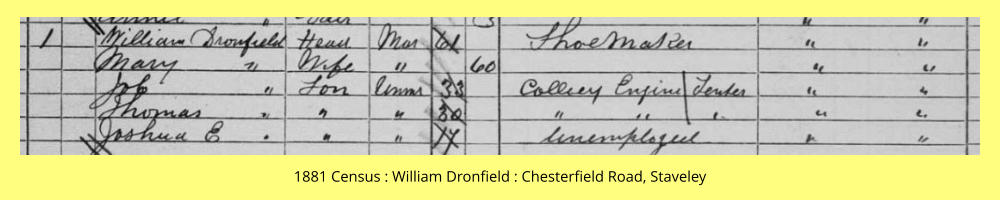 1 William Dronfield Head Mar 61 Shoe Maker " "
Mary " Wife " 60 " "
Job " Son Unmar 33 Colliery Engine Tender " "
Thomas " " " 30 " " " " "
Joshua E " " " 14 Unemployed " "
1881 Census : William Dronfield : Chesterfield Road, Staveley